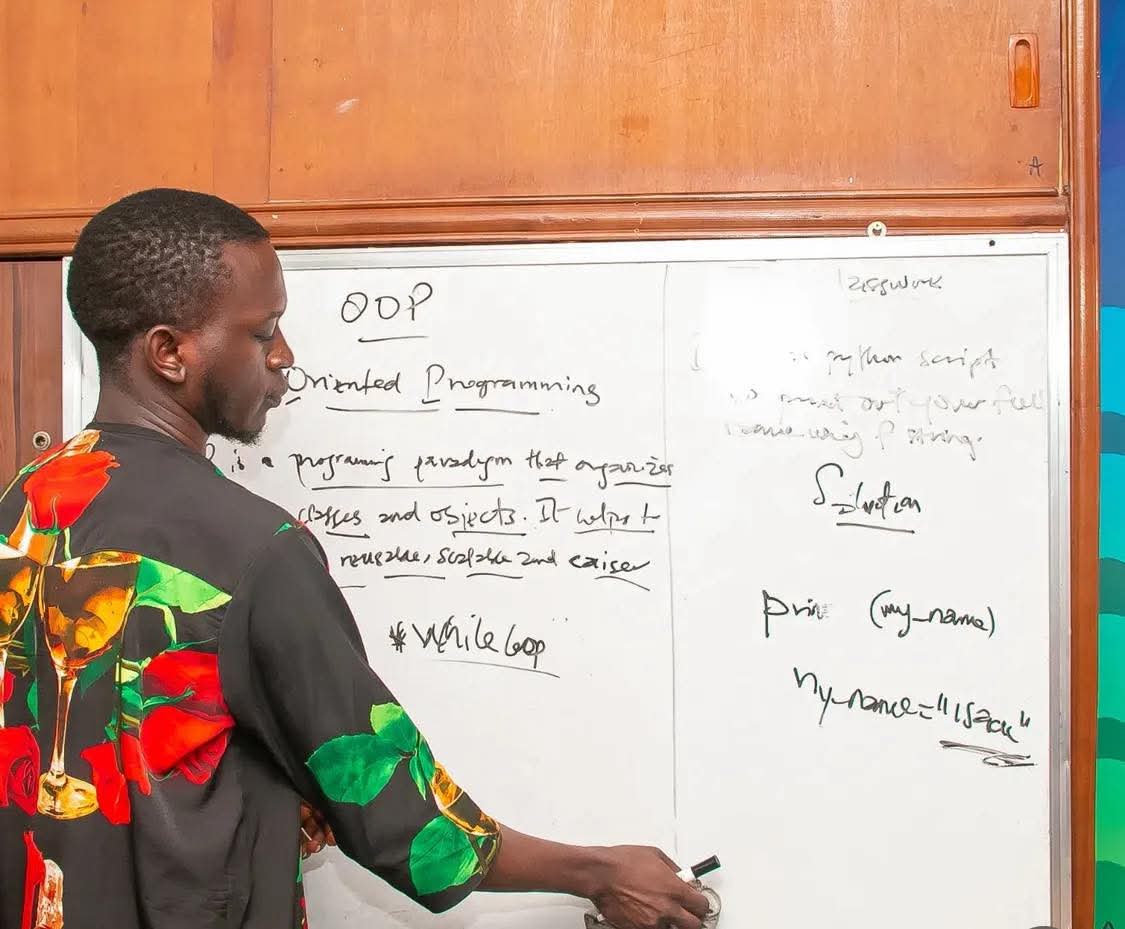 OOP
Oriented Programming
is a programing paradigm that organizes
classes and objects. It helps t
reusable, scalable and easier
*While loop
lasswork
python script
print out your full
name using f string.
Solution
prin (my_name)
my_name = "Isack"
A